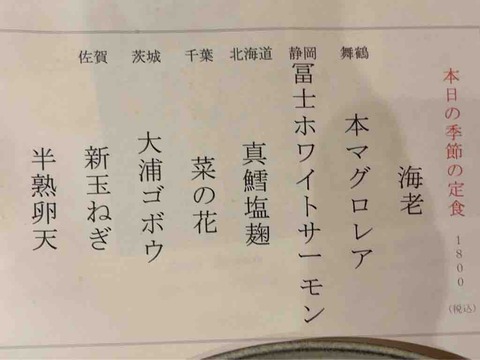 本日の季節の定食 1800 (税込)
海老
舞鶴 本マグロレア
静岡 冨士ホワイトサーモン
北海道 真鱈塩麹
千葉 菜の花
茨城 大浦ゴボウ
佐賀 新玉ねぎ
半熟卵天